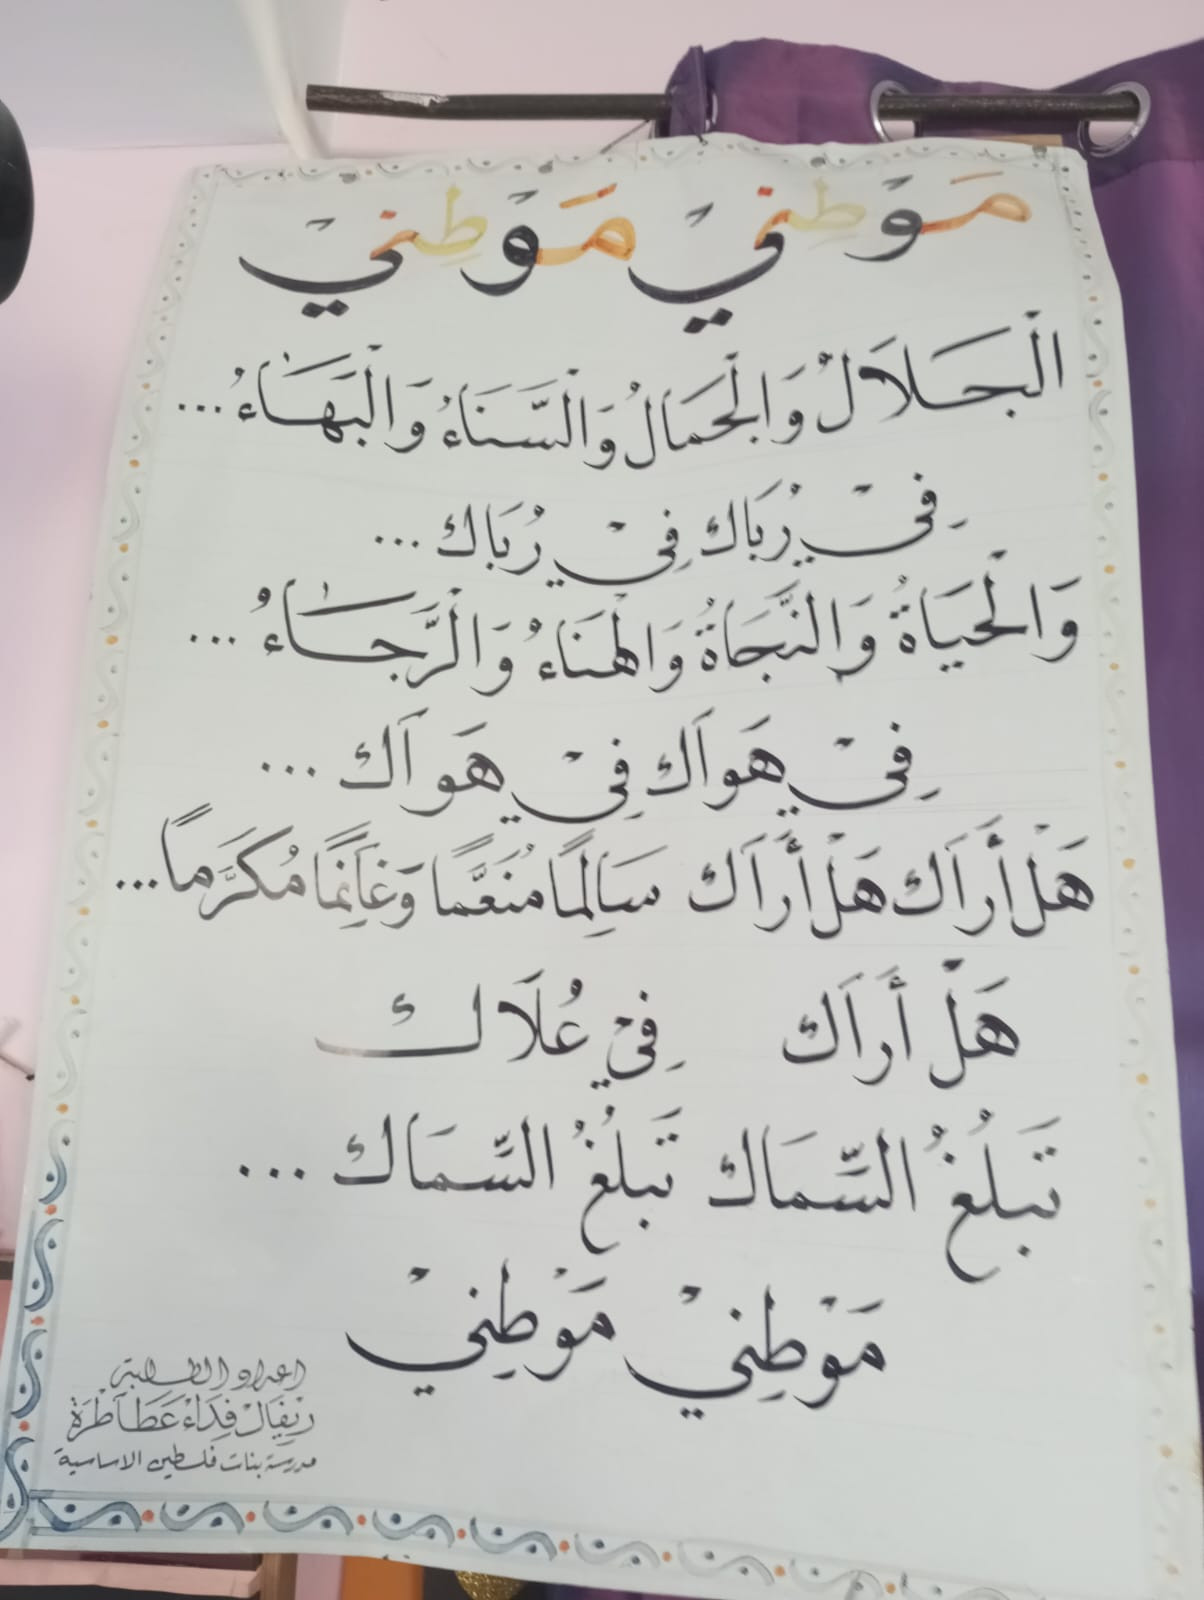 مَوْطِنيْ مَوْطِنيْ
الْجَلَالُ وَالْجَمَالُ وَالْسَّنَاءُ وَالْبَهَاءُ ...
فِيْ رُبَاك فِيْ رُبَاك ...
وَالْحَيَاةُ وَالنَّجَاةُ وَالْهَنَاءُ وَالْرَّجَاءُ ...
فِيْ هَوَاَك فِيْ هَوَاَك ...
هَلْ أَرَاَك هَلْ أَرَاَك سَاَلِمًا مُنَعَّمًا وَغَاَنِمًا مُكَرَّماً ...
هَلْ أَراَك فِيْ عُلَاك
تَبلُغُ السِّمَاك تَبلُغُ السِّمَاك ...
مَوْطِنيْ مَوْطِنيْ
اعداد الطالبة
رِيْفَالْ فِدَاءْ عَطَاَطْرَة
مدرسة بنات فلسطين الاساسية